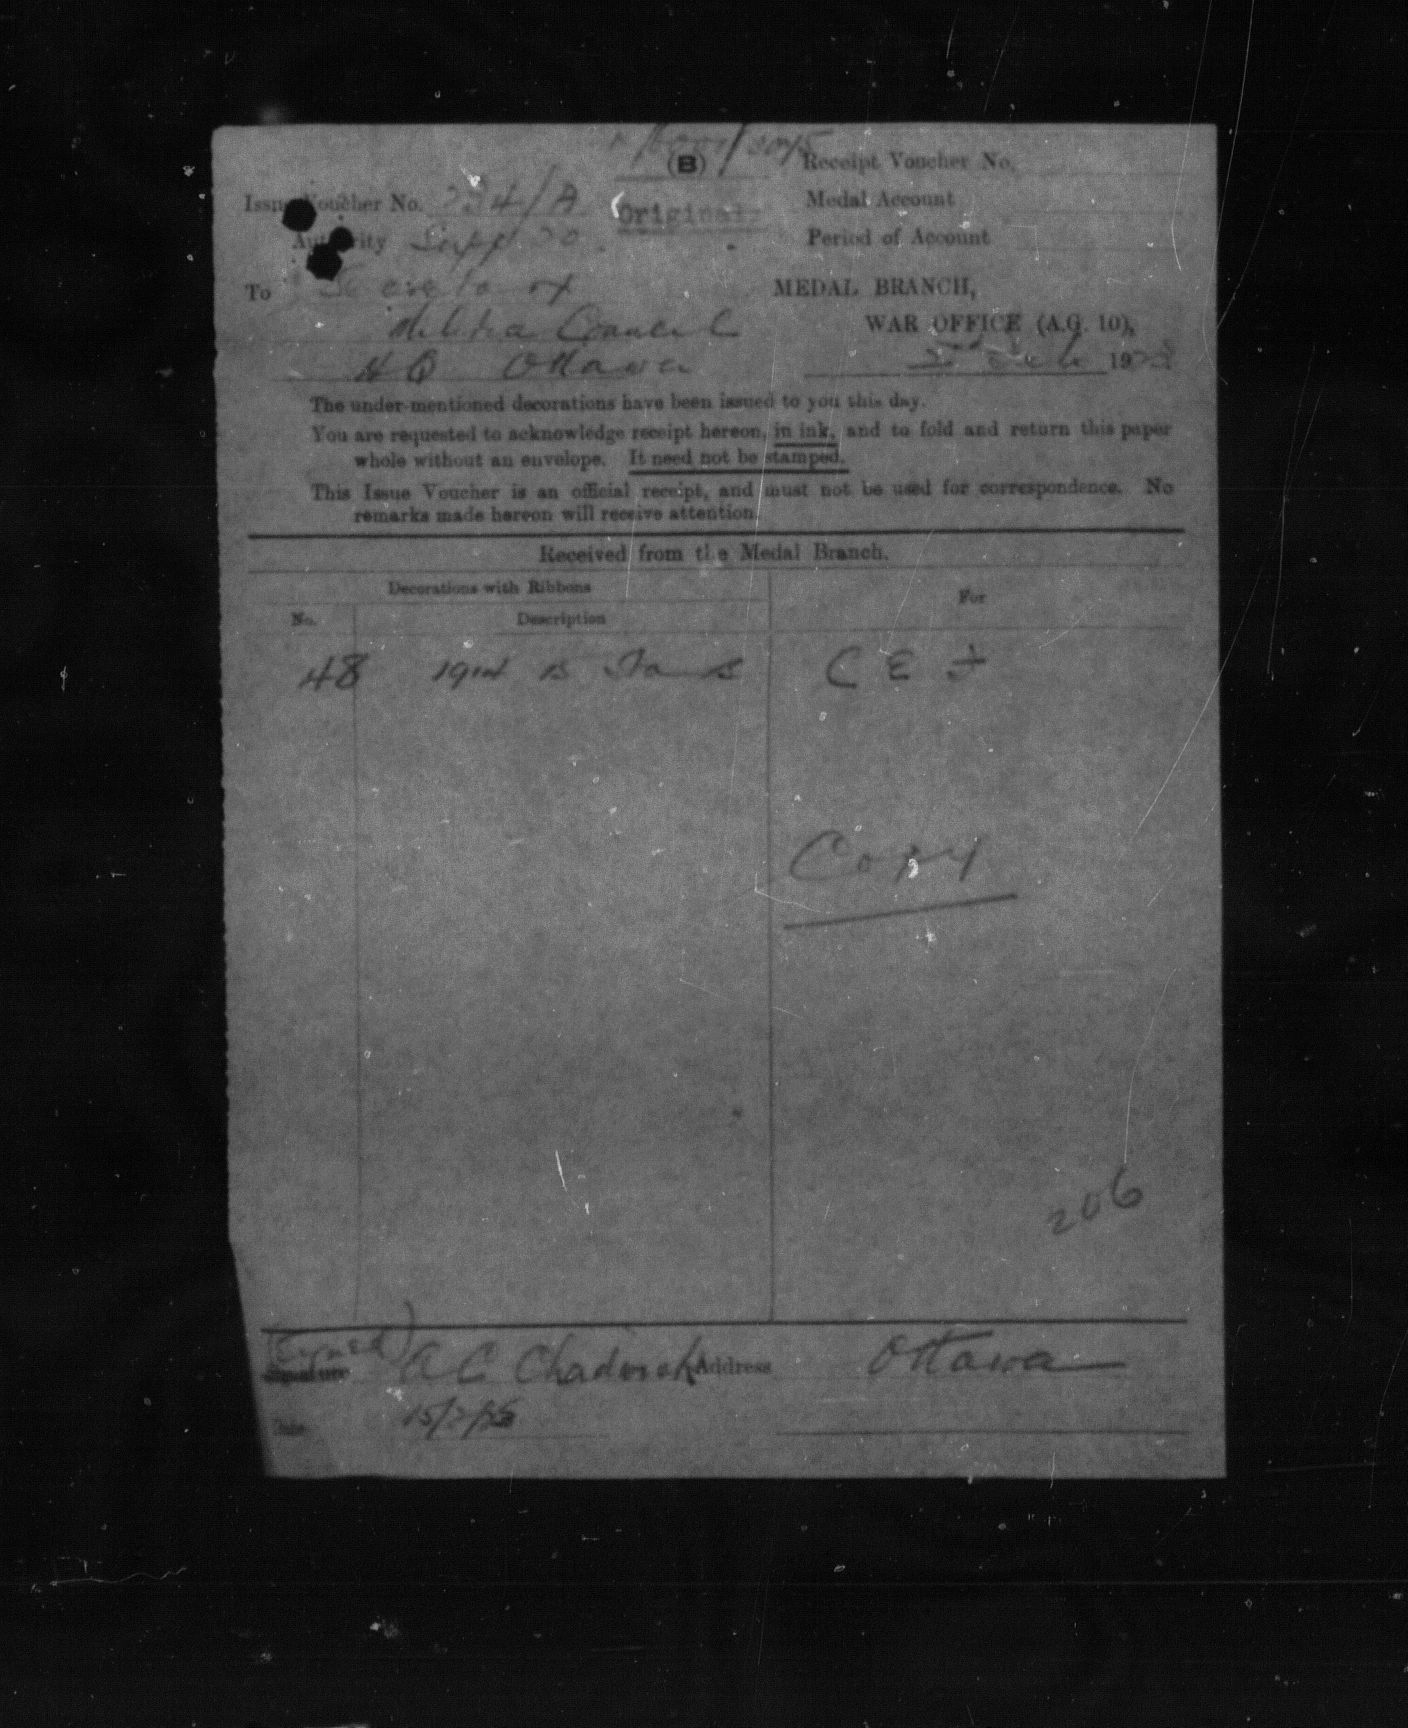 (B)
Receipt Voucher No.
Issue Voucher No. 234/A
Original
Medal Account
Authority Suppl 20.
Period of Account
To Secretary
MEDAL BRANCH,
Militia Council
WAR OFFICE (A.G. 10),
HQ Ottawa
Feb 192
The under-mentioned decorations have been issued to you this day.
You are requested to acknowledge receipt hereon, in ink, and to fold and return this paper
whole without an envelope. It need not be stamped.
This Issue Voucher is an official receipt, and must not be used for correspondence. No
remarks made hereon will receive attention.
Received from the Medal Branch.
Decorations with Ribbons
For
No.
Description
48 1914 15 Stars C E F
Copy
206
(Signed)
Signature A C Chadwick Address Ottawa
Date